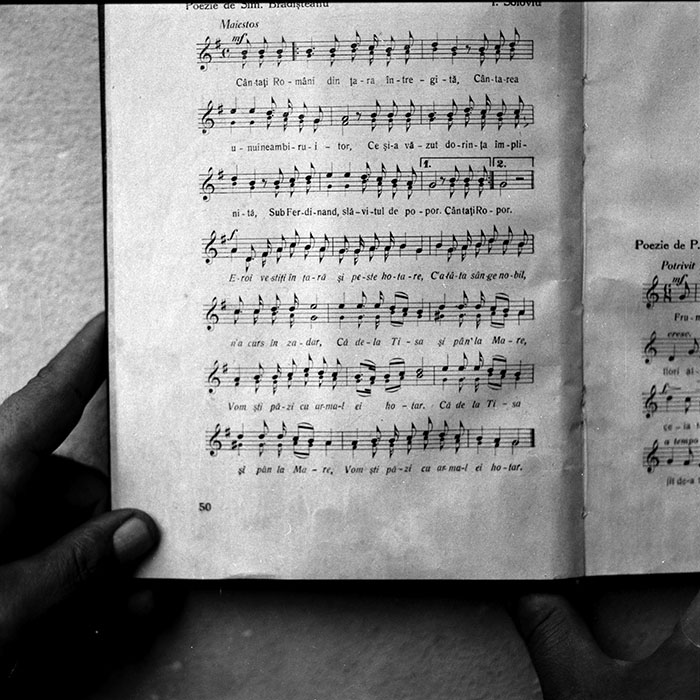 Poezie de Sim. Brădișteanu
I. Soloviu
Maiestos
mf
Cân-tați Ro-mâni din ța-ra în-tre-gi-tă, Cân-ta-rea
u-nuineambi-ru-i-tor, Ce și-a vă-zut do-rin-ța îm-pli-
1. 2.
ni-tă, Sub Fer-di-nand, slă-vi-tul de po-por. Cântați Ro-por.
f
E-roi ve-stiți în ța-ră și pe-ste ho-ta-re, C'atâ-ta sân-ge no-bil,
n'a curs în za-dar, Că de-la Ti-sa și pân'la Ma-re,
Vom ști pă-zi cu ar-ma-l ei ho-tar. Că de la Ti-sa
și pân la Ma-re, Vom ști pă-zi cu ar-ma-l ei ho-tar.
50
Poezie de P.
Potrivit
mf
cresc.
flori al-
f
ce-ia
a tempo